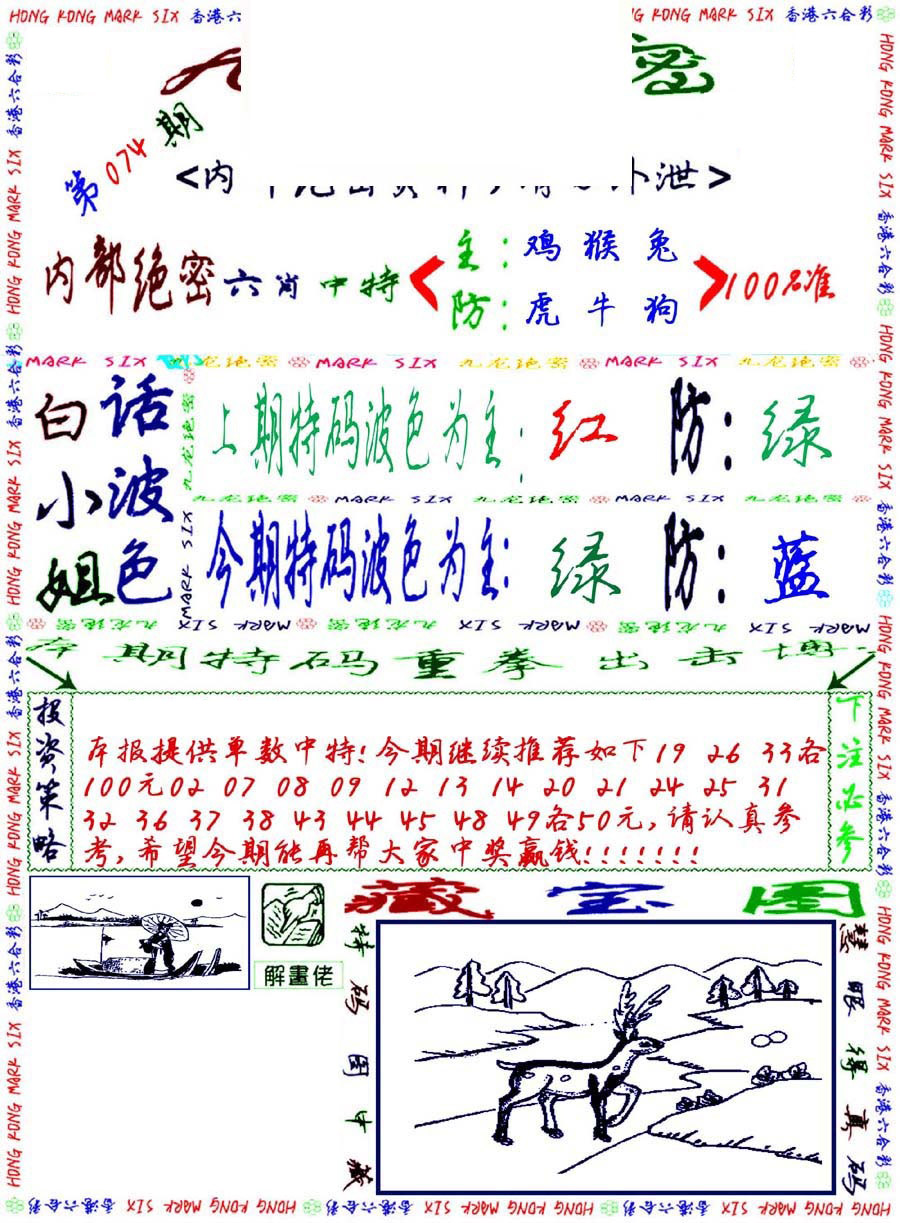 HONG KONG MARK SIX 香港六合彩
密
第074期
<内
外泄>
内部绝密六肖中特
主:鸡猴兔
防:虎牛狗
100%准
MARK SIX 九龙绝密 MARK SIX 九龙绝密 MARK SIX 九龙绝密
白话
小波
姐色
上期特码波色为主:红 防:绿
九龙绝密 MARK SIX 九龙绝密 MARK SIX 九龙绝密
今期特码波色为主:绿 防:蓝
九龙绝密 MARK SIX 九龙绝密 MARK SIX 九龙绝密 MARK SIX
本期特码重拳出击博
投资策略
本报提供单数中特!今期继续推荐如下19 26 33各
100元02 07 08 09 12 13 14 20 21 24 25 31
32 36 37 38 43 44 45 48 49各50元,请认真参
考,希望今期能再帮大家中奖赢钱!!!!!!!
下注必参
解畫佬
藏宝图
特码图中藏
慧眼得真码
HONG KONG MARK SIX 香港六合彩